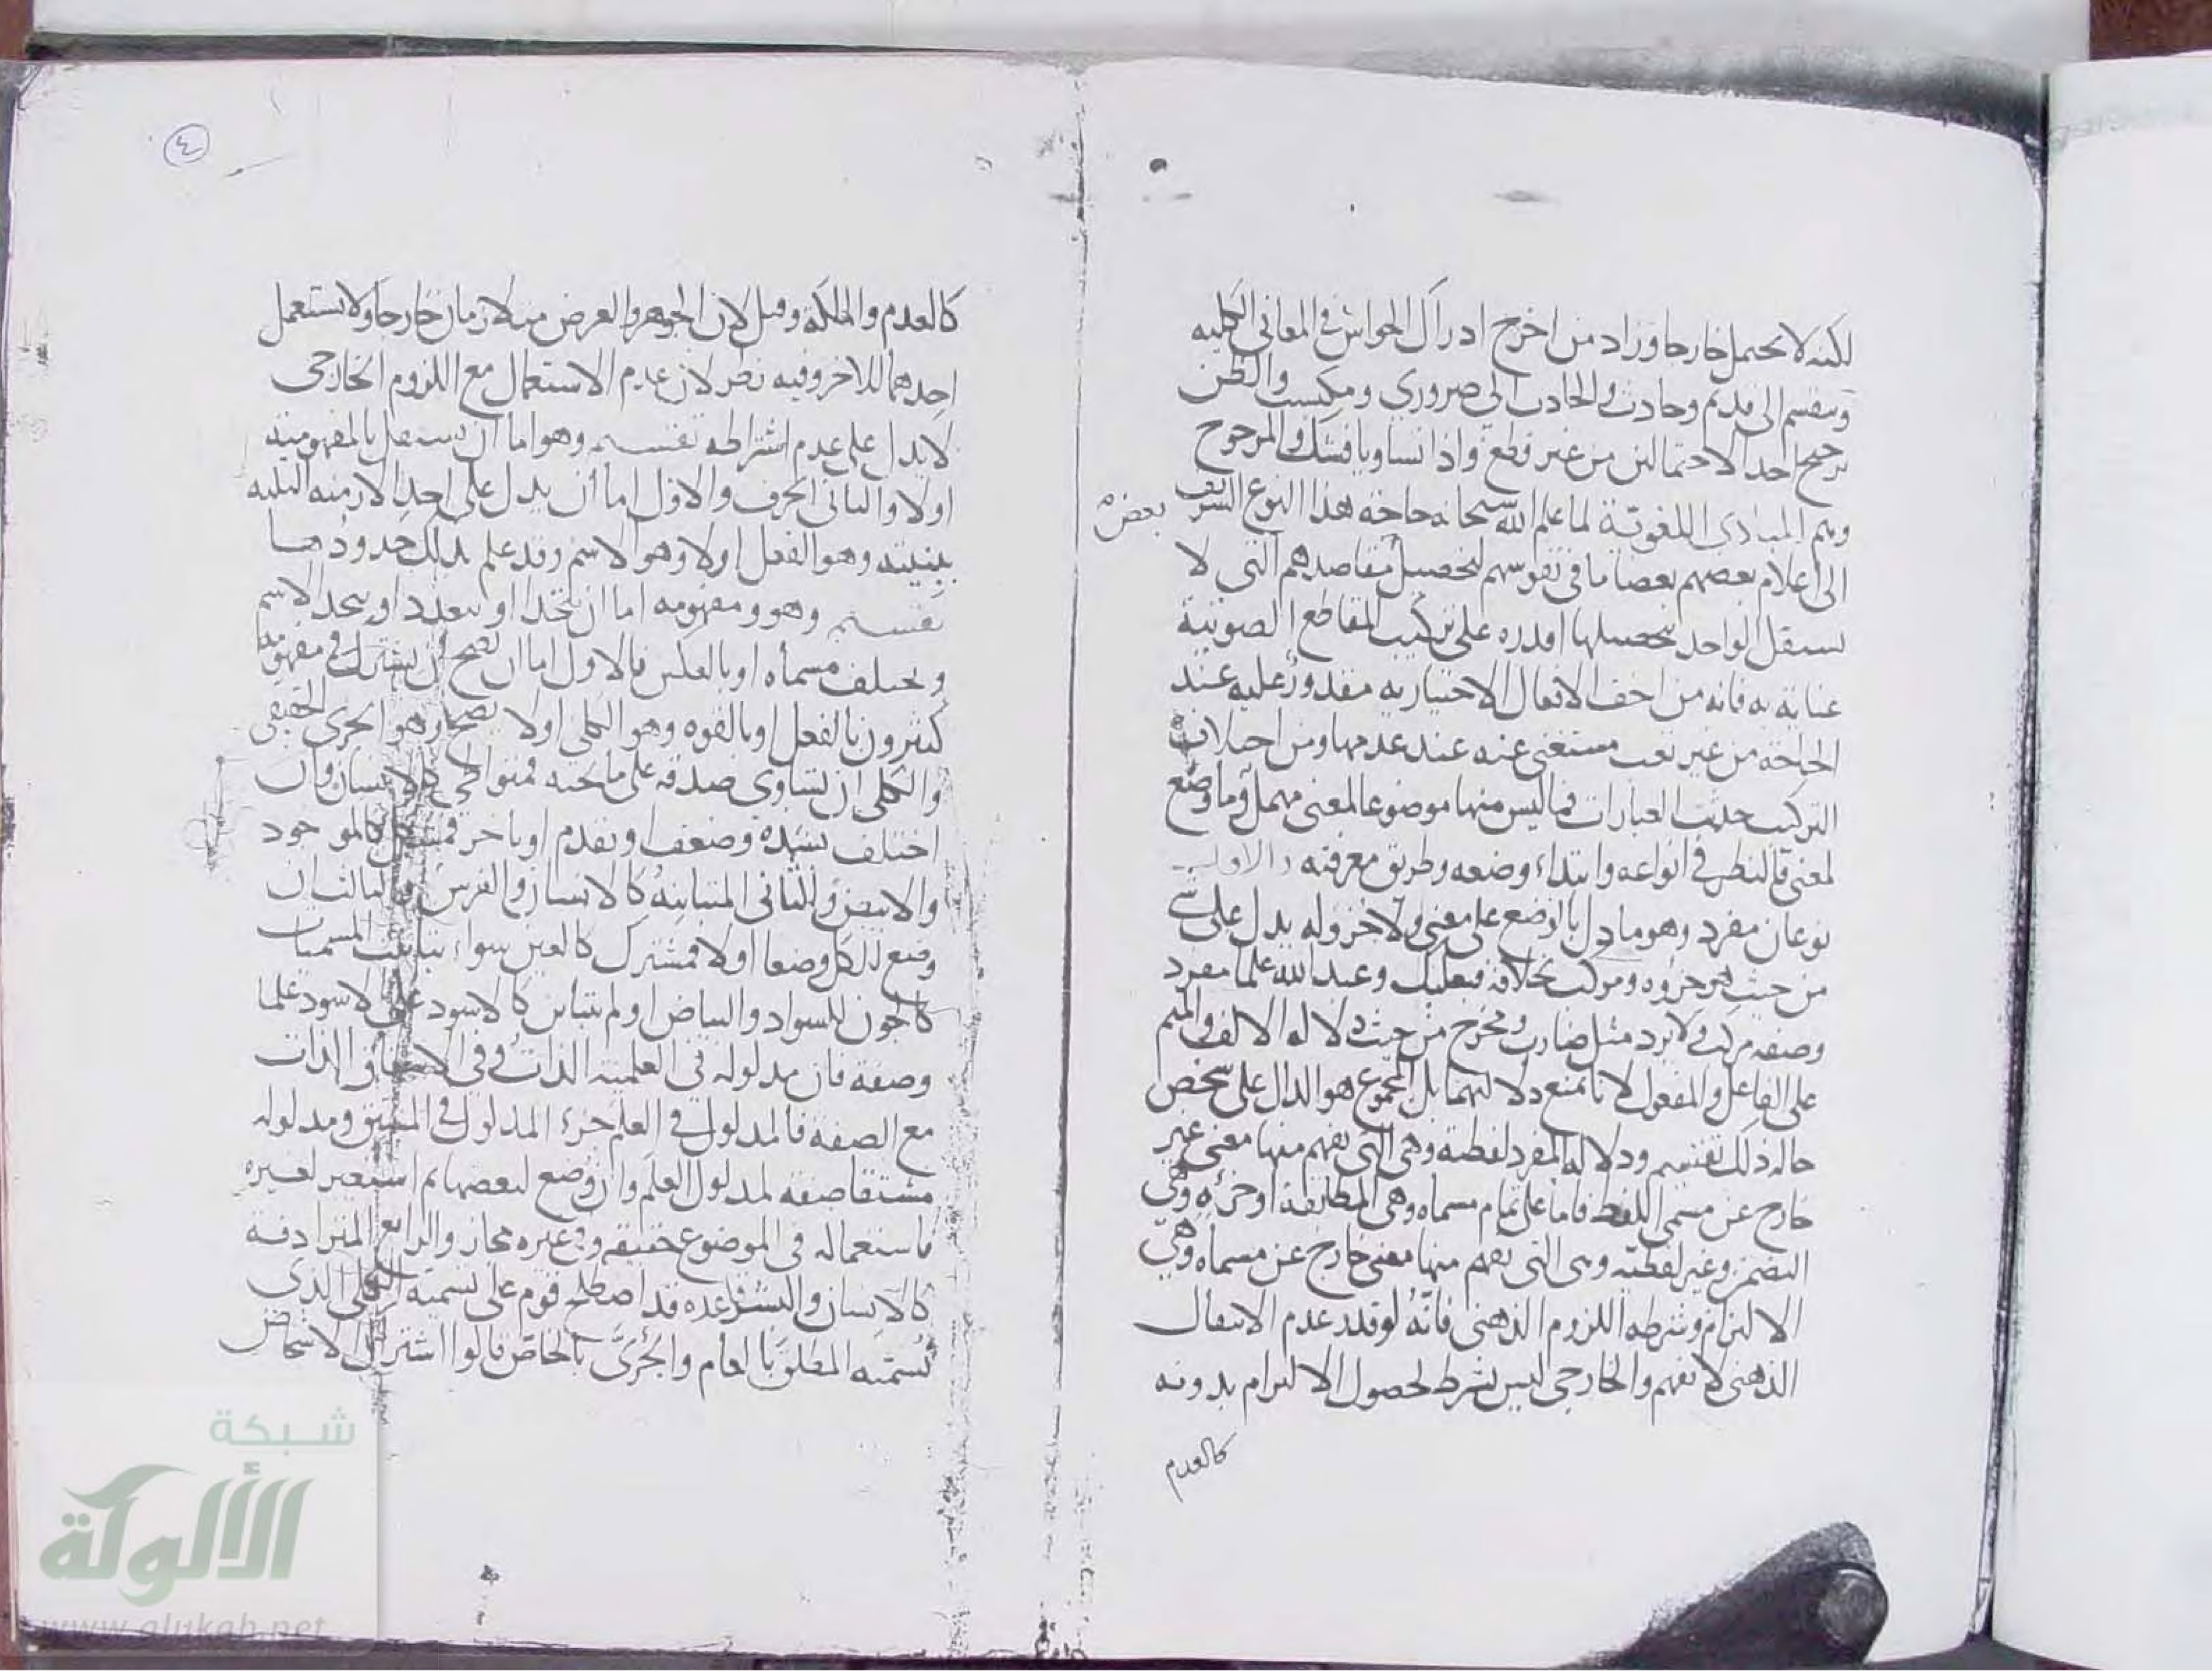 لكنه لا يحتمل خارجا وزاد من اخرج ادراك الحواس في المعاني الكلية
وينقسم الى قديم وحادث والحادث الى ضروري ومكتسب والظن
ترجيح احد الاحتمالين من غير قطع واذا تساويا فشك والمرجوح
وهم المبادي اللغوية لما علم الله سبحانه حاجة هذا النوع الشريف
الى اعلام بعضهم بعضا ما في نفوسهم لتحصيل مقاصدهم التي لا
يستقل الواحد بتحصيلها اقدره على تركيب المقاطع الصوتية
عناية به فانه من اخف الافعال الاختيارية مقدور عليه عند
الحاجة من غير تعب مستغنى عنه عند عدمها ومن اختلاف
التركيب حدثت العبارات فما ليس منها موضوعا لمعنى مهمل وما وضع
لمعنى فالنظر في انواعه وابتداء وضعه وطريق معرفته الاول
نوعان مفرد وهو ما دل بالوضع على معنى ولا جزء له يدل على شي
من حيث هو جزوه ومركب بخلافه فبعلبك وعبد الله علما مفرد
وصفة مركب ولا يرد مثل ضارب ومخرج من حيث دلالة الالف والميم
على الفاعل والمفعول لانا نمنع دلالتهما بل المجموع هو الدال على شخص
حاله ذلك تقسيم ودلالة المفرد لفظية وهي التي يفهم منها معنى غير
خارج عن مسمى اللفظ فاما على تمام مسماه وهي المطابقة او جزءه وهي
التضمن وغير لفظية وهي التي يفهم منها معنى خارج عن مسماه وهي
الالتزام وشرطه اللزوم الذهني فانه لو قدر عدم الانتقال
الذهني لا يفهم والخارجي ليس بشرط لحصول الالتزام بدونه
كالعدم
بعضه
٤
كالعدم والملكة وقيل لان الجوهر والعرض متلازمان خارجا ولا يستعمل
احدهما للاخر وفيه نظر لان عدم الاستعمال مع اللزوم الخارجي
لا يدل على عدم اشتراطه تقسيم وهو اما ان يستقل بالمفهومية
اولا والثاني الحرف والاول اما ان يدل على احد الازمنة الثلثة
ببنيته وهو الفعل اولا وهو الاسم وقد علم بذلك حدودها
تقسيم وهو ومفهومه اما ان يتحدا او يتعدد او يتحد الاسم
ويختلف مسماه او بالعكس فالاول اما ان يصح ان يشترك في مفهومه
كثيرون بالفعل او بالقوه وهو الكلي اولا يصح وهو الجزي الحقيقي
والكلي ان تساوى صدقه على ما تحته فمتواطي كالانسان وان
اختلف بشدة وضعف او تقدم او تاخر فمشكك كالموجود
والابيض والثاني المتباينة كالانسان والفرس والثالث ان
وضع للكل وضعا اولا فمشترك كالعين سواء تباينت المسميات
كالجون للسواد والبياض او لم تتباين كالاسود على الاسود علما
وصفة فان مدلوله في العلمية الذات وفي الاشتقاق الذات
مع الصفة فالمدلول في العلم جزء المدلول في المشتق ومدلوله
مشتقا صفة لمدلول العلم وان وضع لبعضها ثم استعير لغيره
فاستعماله في الموضوع حقيقة وفي غيره مجاز والرابع المترادفة
كالانسان والبشر قاعدة قد اصطلح قوم على تسمية الكلي الذي
تسمية المطلق بالعام والجزي بالخاص فالوا اشتراك الاشخاص
شبكة
الألوكة
www.alukah.net